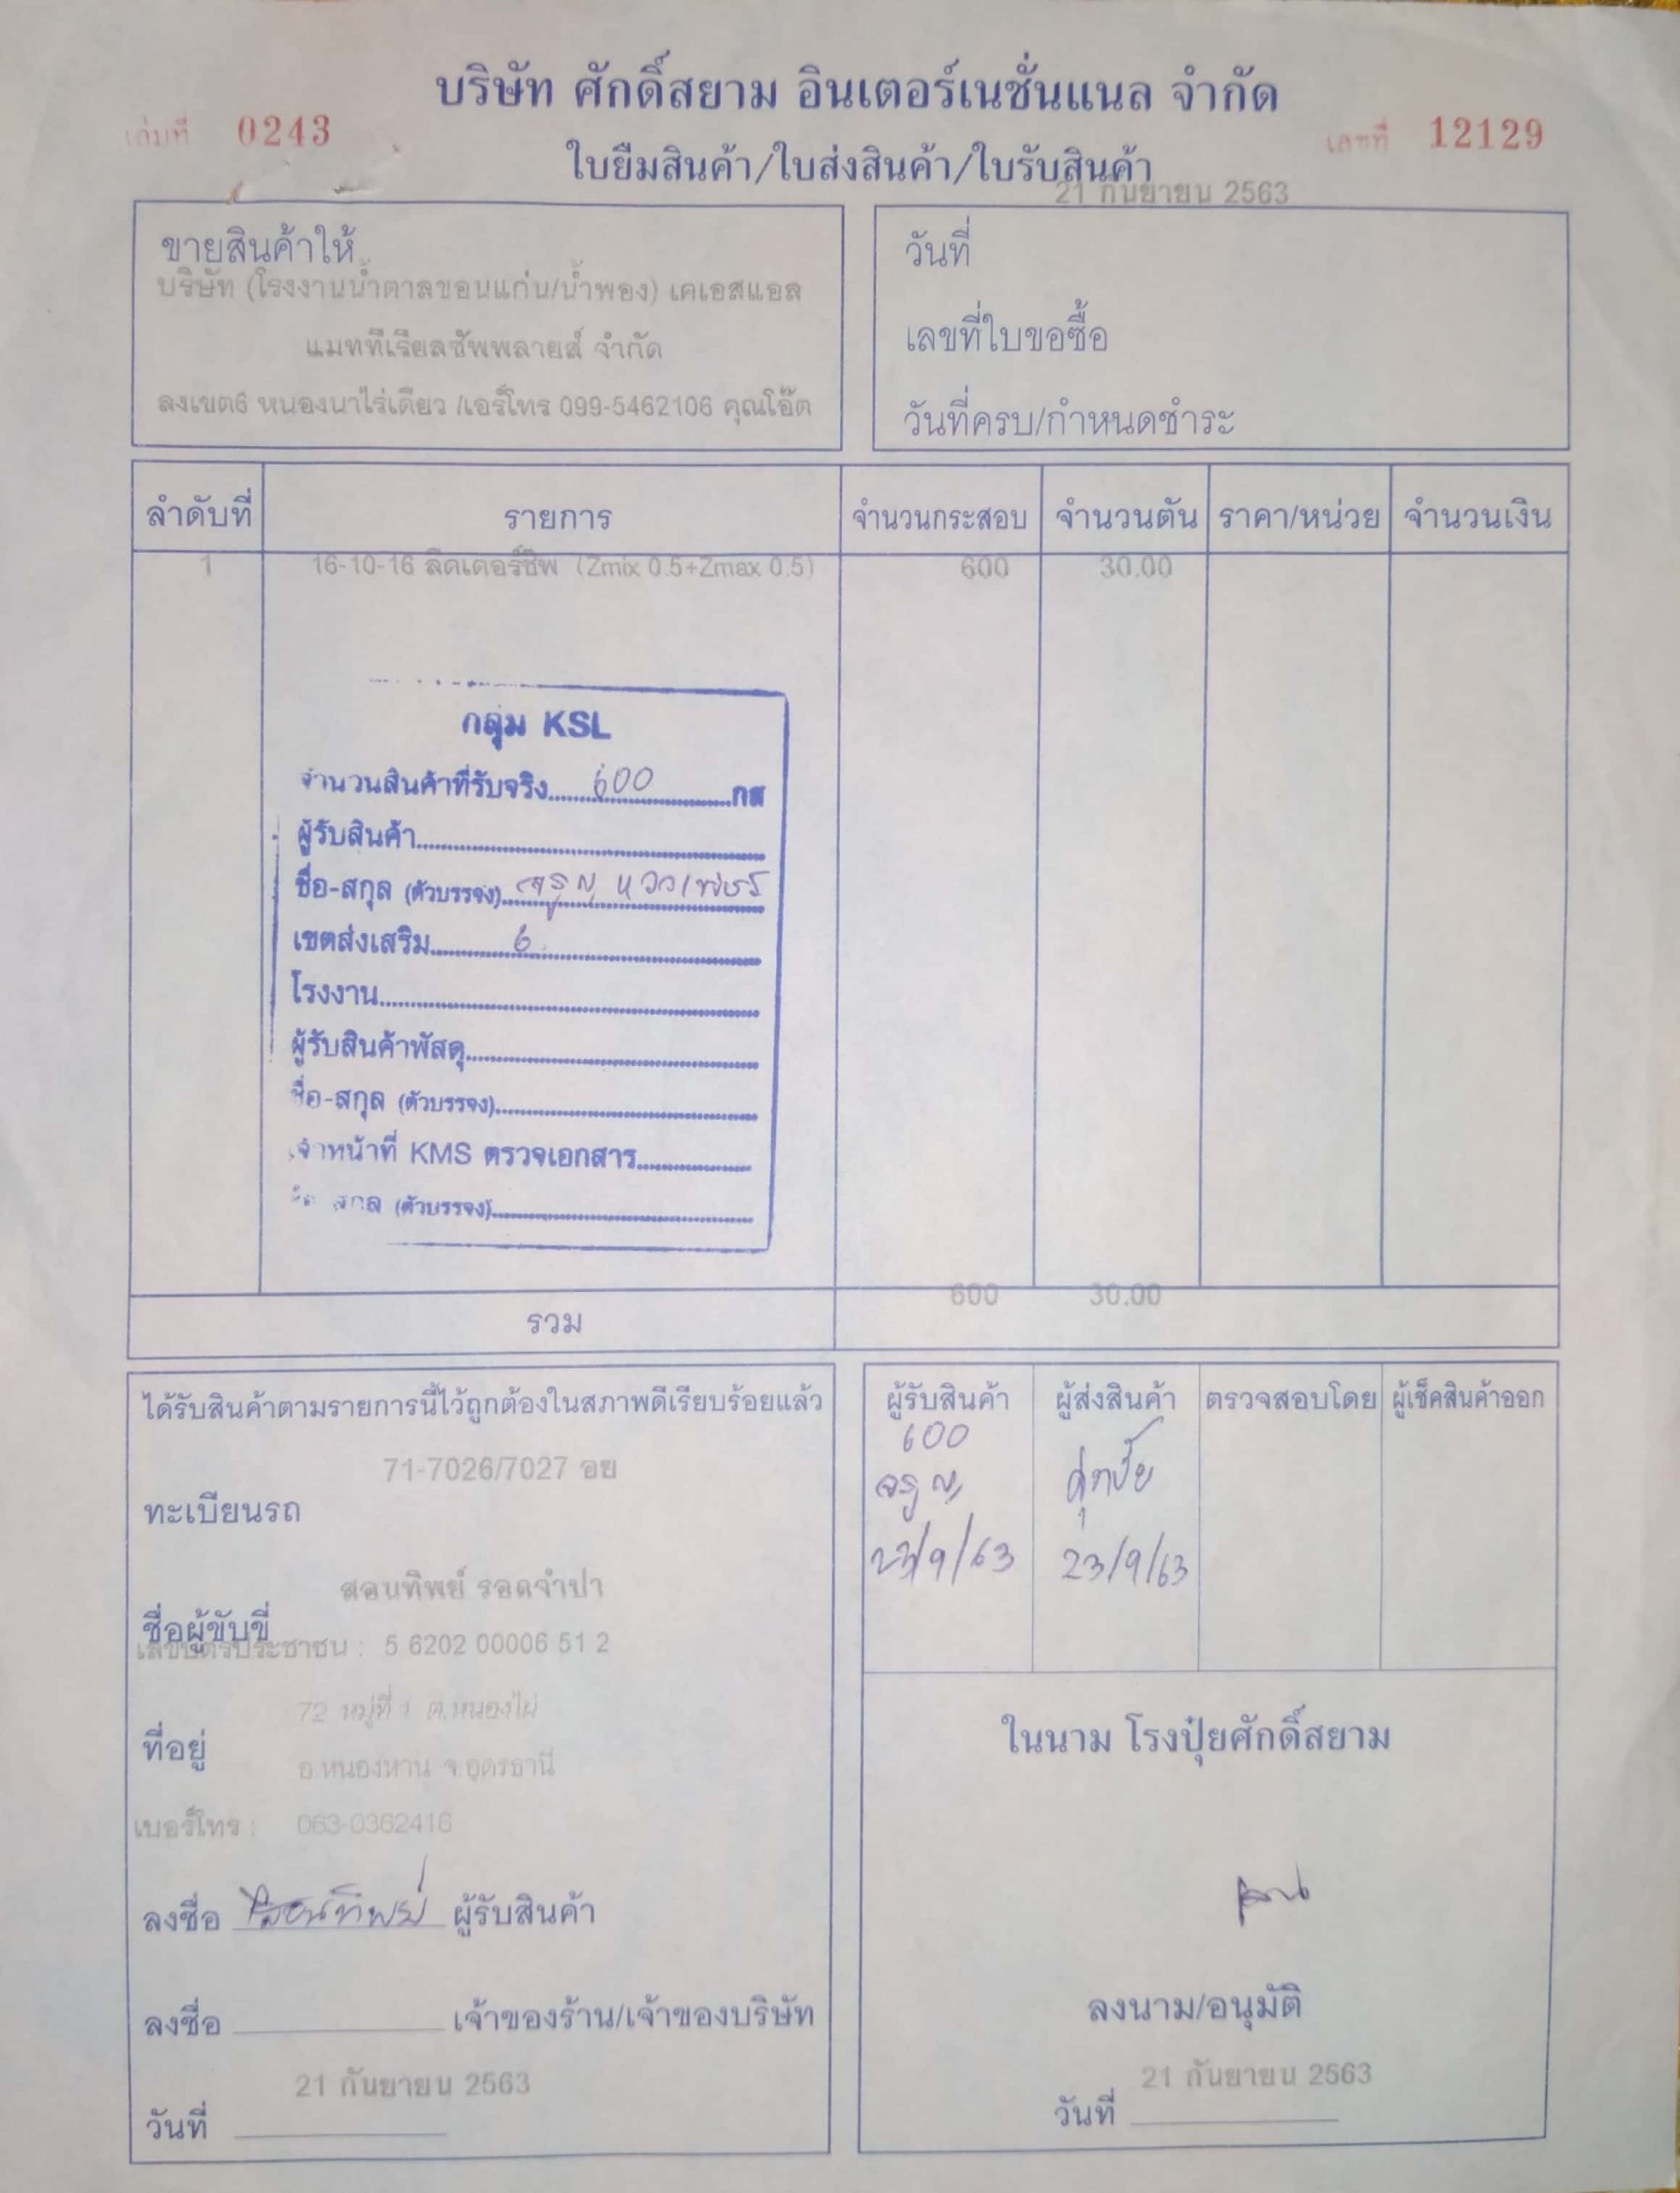 บริษัท ศักดิ์สยาม อินเตอร์เนชั่นแนล จำกัด
เล่มที่ 0243
เลขที่ 12129
ใบยืมสินค้า/ใบส่งสินค้า/ใบรับสินค้า
21 กันยายน 2563
ขายสินค้าให้
บริษัท (โรงงานน้ำตาลขอนแก่น/น้ำพอง) เคเอสแอล
แมททีเรียลซัพพลายส์ จำกัด
ลงเขต6 หนองนาไร่เดียว /เอร์โทร 099-5462106 คุณโอ๊ต
วันที่
เลขที่ใบขอซื้อ
วันที่ครบ/กำหนดชำระ
ลำดับที่ รายการ จำนวนกระสอบ จำนวนตัน ราคา/หน่วย จำนวนเงิน
1 16-10-16 ลีดเตอร์ชิพ (Zmix 0.5+Zmax 0.5) 600 30.00
กลุ่ม KSL
จำนวนสินค้าที่รับจริง 600 กส
ผู้รับสินค้า
ชื่อ-สกุล (ตัวบรรจง) จรูญ
เขตส่งเสริม 6
โรงงาน
ผู้รับสินค้าพัสดุ
ชื่อ-สกุล (ตัวบรรจง)
เจ้าหน้าที่ KMS ตรวจเอกสาร
ชื่อ-สกุล (ตัวบรรจง)
รวม 600 30.00
ได้รับสินค้าตามรายการนี้ไว้ถูกต้องในสภาพดีเรียบร้อยแล้ว
71-7026/7027 อย
ทะเบียนรถ
สอนทิพย์ รอดจำปา
ชื่อผู้ขับขี่
เลขบัตรประชาชน : 5 6202 00006 51 2
72 หมู่ที่ 1 ต.หนองไผ่
ที่อยู่
อ.หนองหาน จ.อุดรธานี
เบอร์โทร : 063-0362416
ลงชื่อ สอนทิพย์ ผู้รับสินค้า
ลงชื่อ เจ้าของร้าน/เจ้าของบริษัท
21 กันยายน 2563
วันที่
ผู้รับสินค้า ผู้ส่งสินค้า ตรวจสอบโดย ผู้เช็คสินค้าออก
600
จรูญ
23/9/63 23/9/63
ในนาม โรงปุ๋ยศักดิ์สยาม
ลงนาม/อนุมัติ
21 กันยายน 2563
วันที่